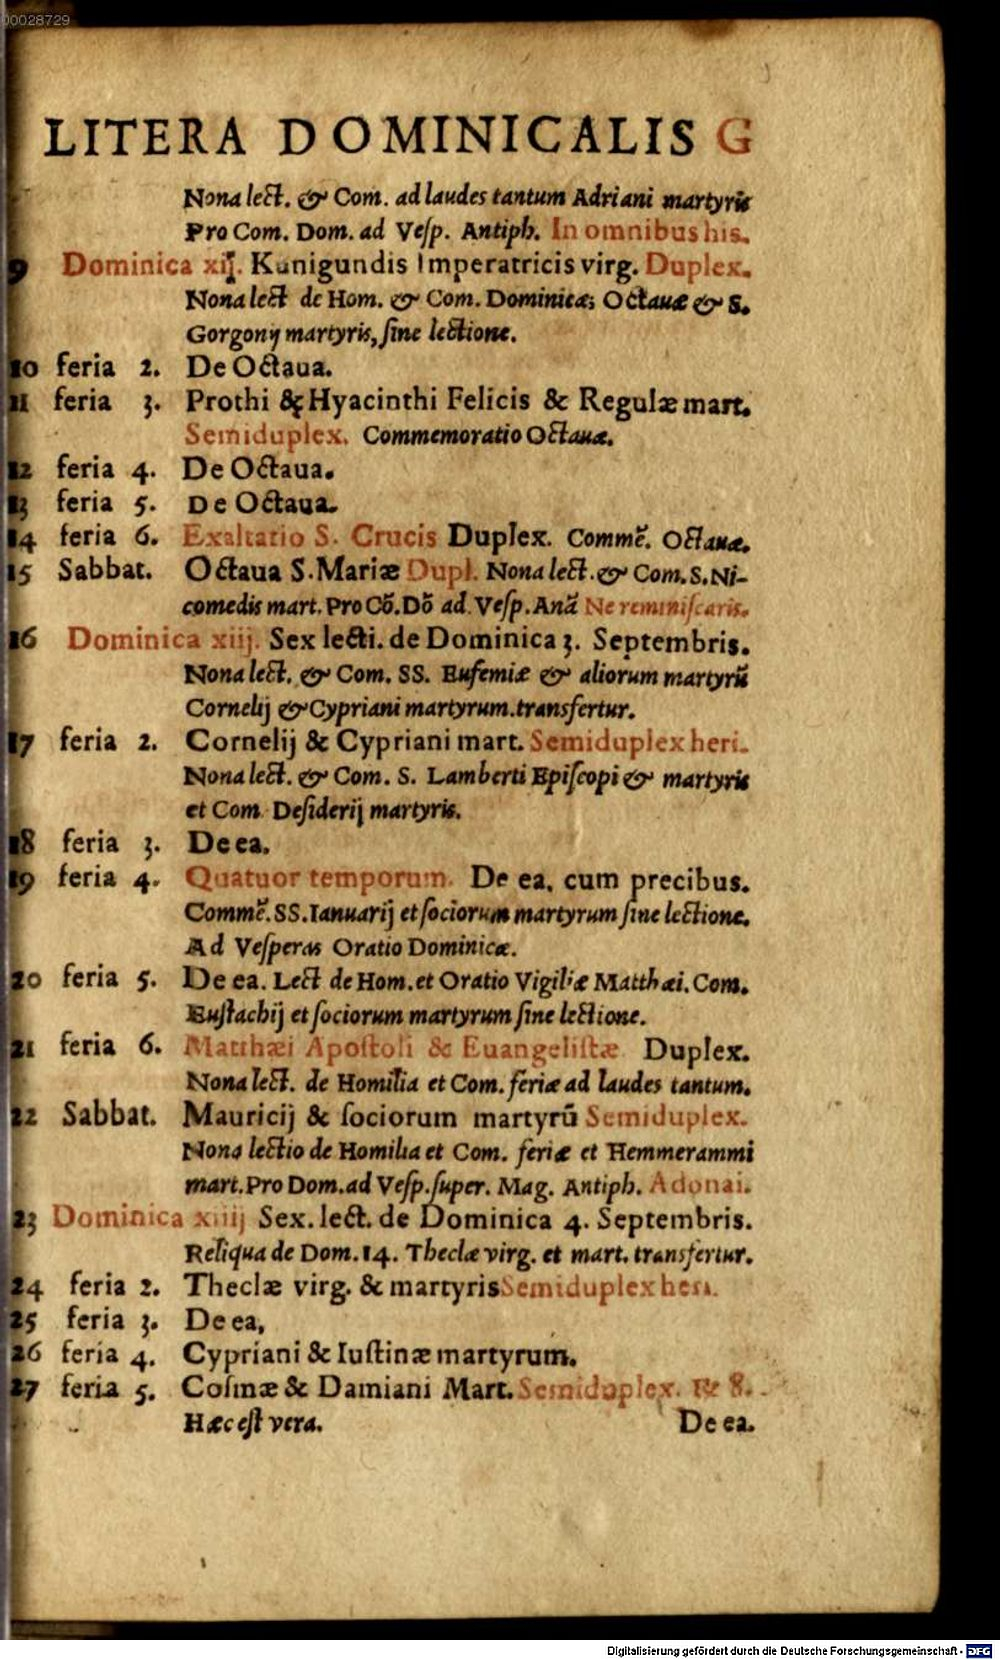 00028729
LITERA DOMINICALIS G
Nona lect. & Com. ad laudes tantum Adriani martyris
Pro Com. Dom. ad Veſp. Antiph. In omnibus his.
9 Dominica xij. Kunigundis Imperatricis virg. Duplex.
Nona lect de Hom. & Com. Dominicæ, Octauæ & S.
Gorgonij martyris, ſine lectione.
10 feria 2. De Octaua.
11 feria 3. Prothi & Hyacinthi Felicis & Regulæ mart.
Semiduplex. Commemoratio Octauæ.
12 feria 4. De Octaua.
13 feria 5. De Octaua.
14 feria 6. Exaltatio S. Crucis Duplex. Commē. Octauæ.
15 Sabbat. Octaua S. Mariæ Dupl. Nona lect. & Com. S. Ni-
comedis mart. Pro Cō. Dō ad Veſp. Anā Ne reminiſcaris.
16 Dominica xiij. Sex lecti. de Dominica 3. Septembris.
Nona lect. & Com. SS. Eufemiæ & aliorum martyrū
Cornelij & Cypriani martyrum. transfertur.
17 feria 2. Cornelij & Cypriani mart. Semiduplex heri.
Nona lect. & Com. S. Lamberti Epiſcopi & martyris
et Com. Deſiderij martyris.
18 feria 3. De ea.
19 feria 4. Quatuor temporum. De ea, cum precibus.
Commē. SS. Ianuarij et ſociorum martyrum ſine lectione.
Ad Veſperas Oratio Dominicæ.
20 feria 5. De ea. Lect de Hom. et Oratio Vigiliæ Matthæi. Com.
Euſtachij et ſociorum martyrum ſine lectione.
21 feria 6. Matthæi Apoſtoli & Euangeliſtæ Duplex.
Nona lect. de Homilia et Com. feriæ ad laudes tantum.
22 Sabbat. Mauricij & ſociorum martyrū Semiduplex.
Nona lectio de Homilia et Com. feriæ et Hemmerammi
mart. Pro Dom. ad Veſp. ſuper. Mag. Antiph. Adonai.
23 Dominica xiiij Sex. lect. de Dominica 4. Septembris.
Reliqua de Dom. 14. Theclæ virg. et mart. transfertur.
24 feria 2. Theclæ virg. & martyris Semiduplex heri.
25 feria 3. De ea,
26 feria 4. Cypriani & Iuſtinæ martyrum.
27 feria 5. Coſmæ & Damiani Mart. Semiduplex. ℟ 8.
Hæc eſt vera. De ea.
Digitalisierung gefördert durch die Deutsche Forschungsgemeinschaft - DFG